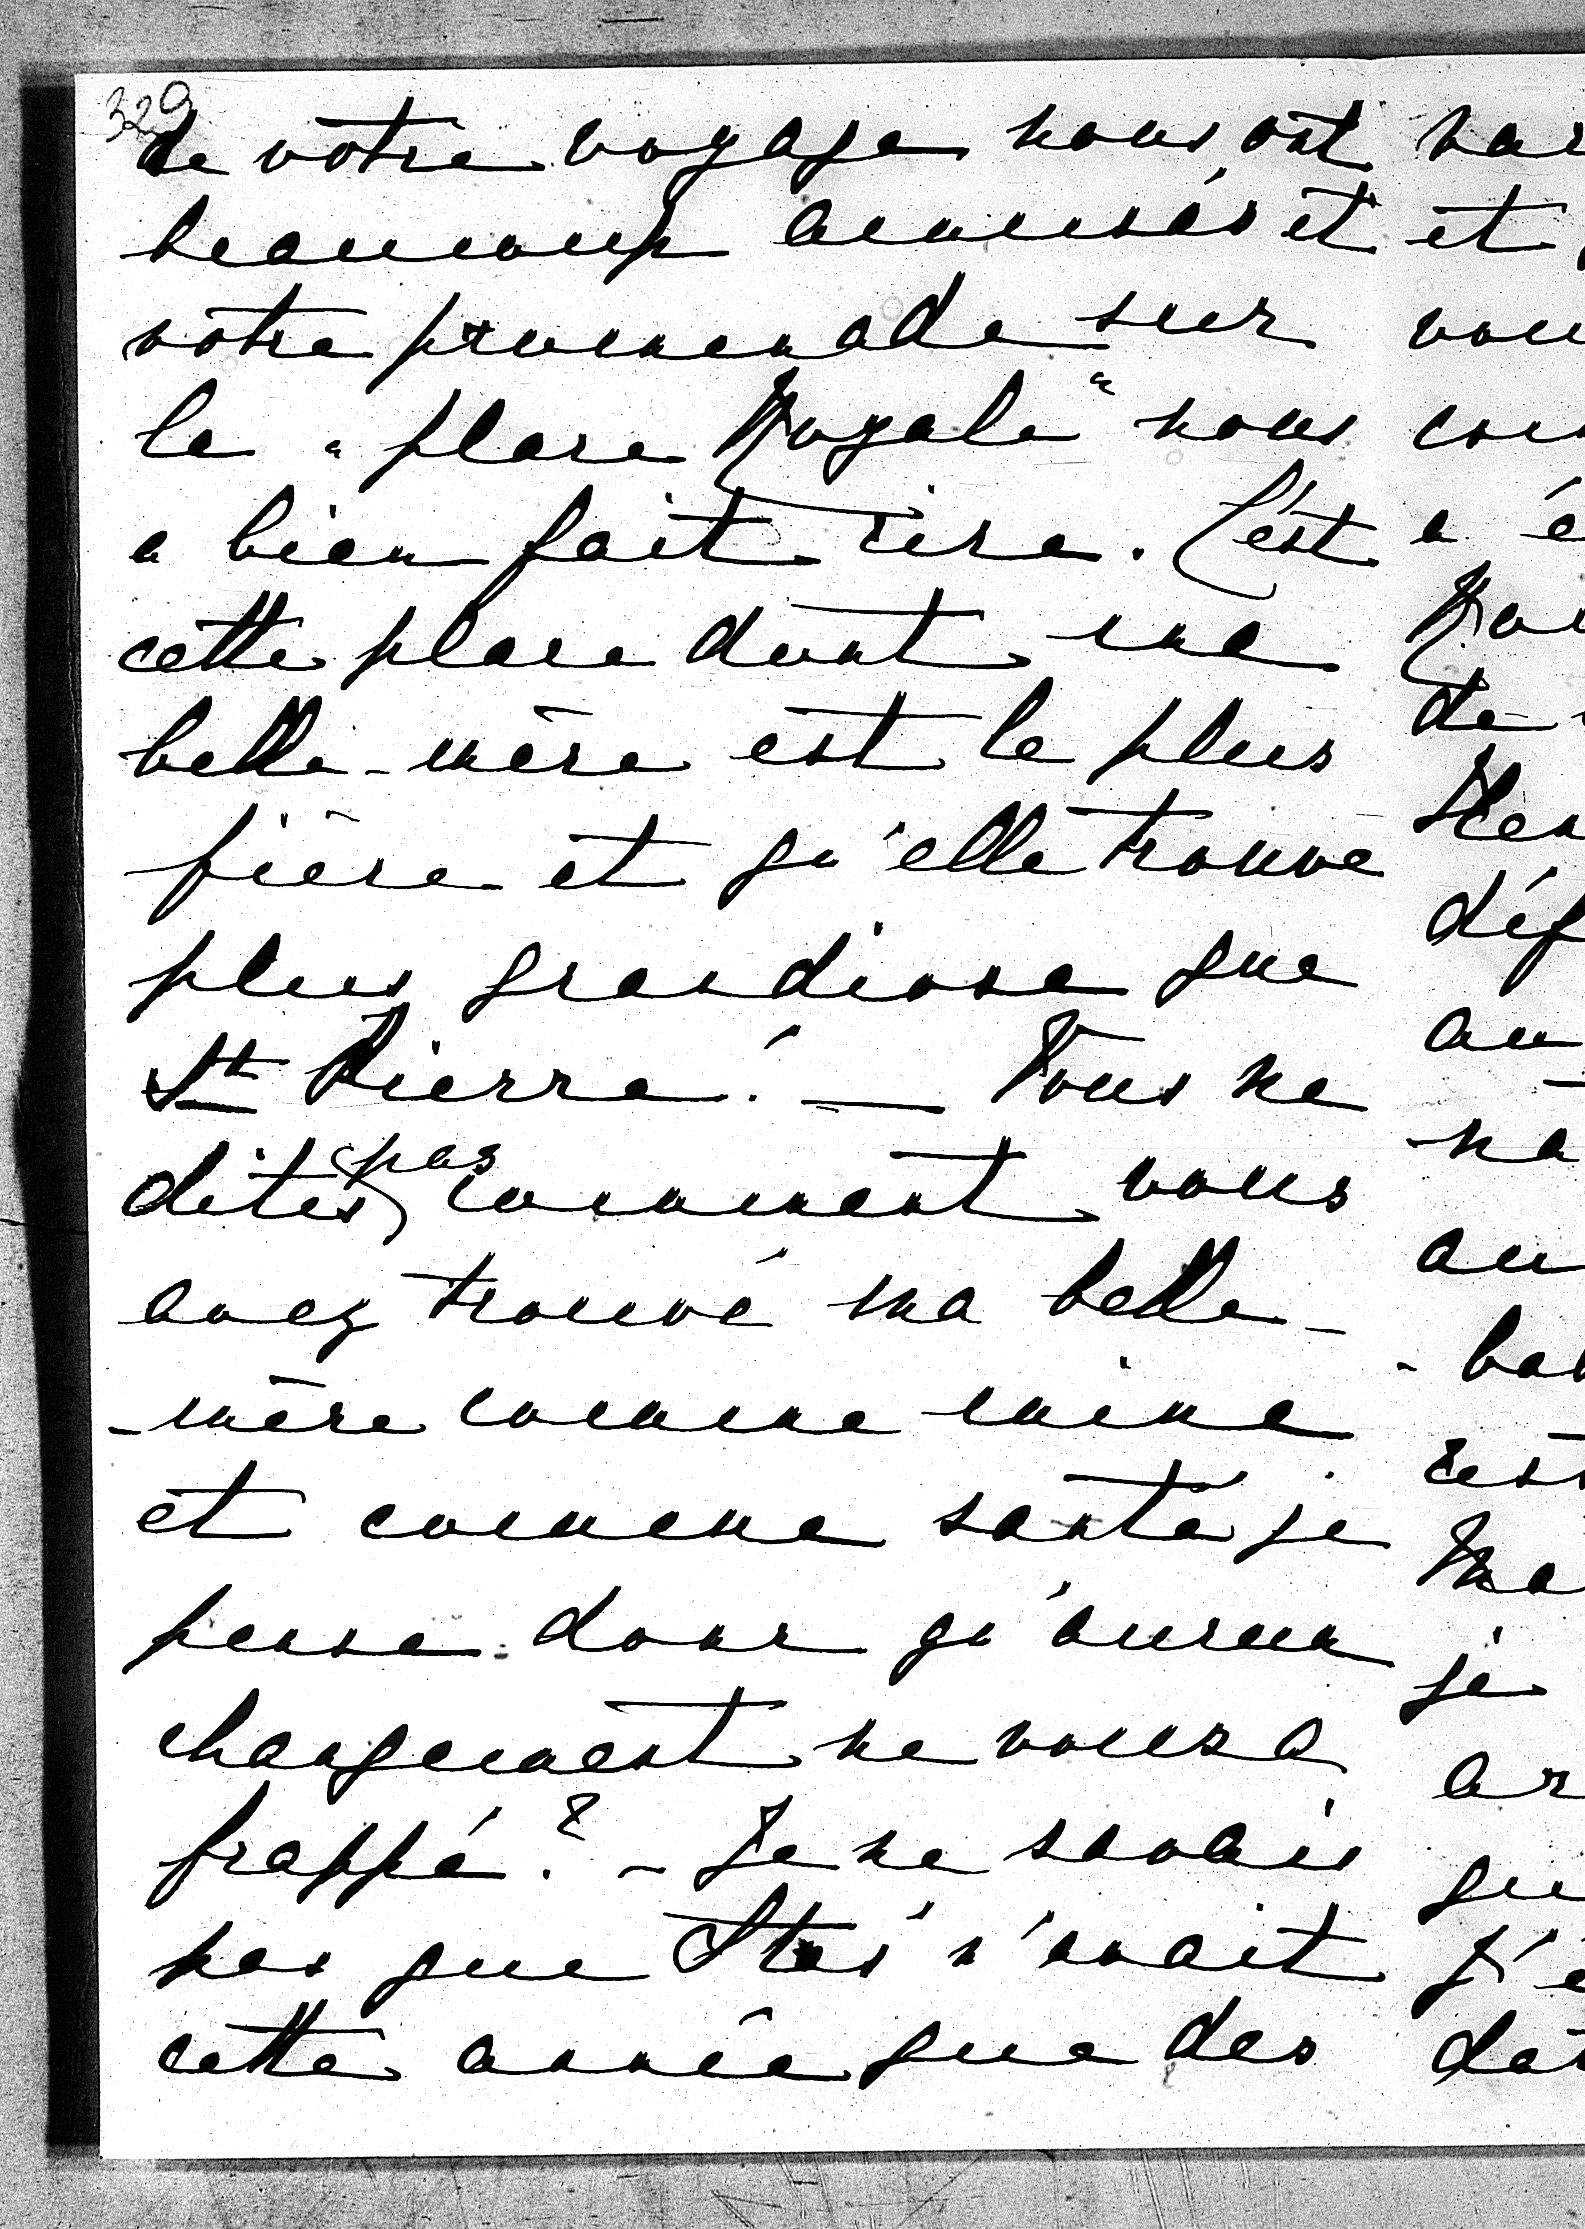 329
de votre voyage nous ont
beaucoup amusés et
votre promenade sur
la "place Royale" nous
a bien fait rire. C'est
cette place dont ma
belle-mère est le plus
fière et qu'elle trouve
plus grandiose que
St Pierre! — Vous ne
dites pas comment vous
avez trouvé ma belle-
-mère comme mine
et comme santé je
pense donc qu'aucun
changement ne vous a
frappé? - Je ne savais
pas que Stas' n'avait
cette année que des
et
de
je